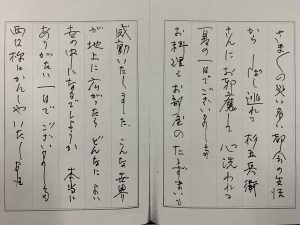 都会の生活
から 少し逃れて 杉五兵衛
さんにお邪魔して 心洗われる
の一日でございました
お料理もお部屋のたたずまいも
感動いたしました。こんな世界
が地上に広がったら どんなによい
世の中になるでしょうか 本当に
ありがたい一日でございました
西口様にかんしゃいたします